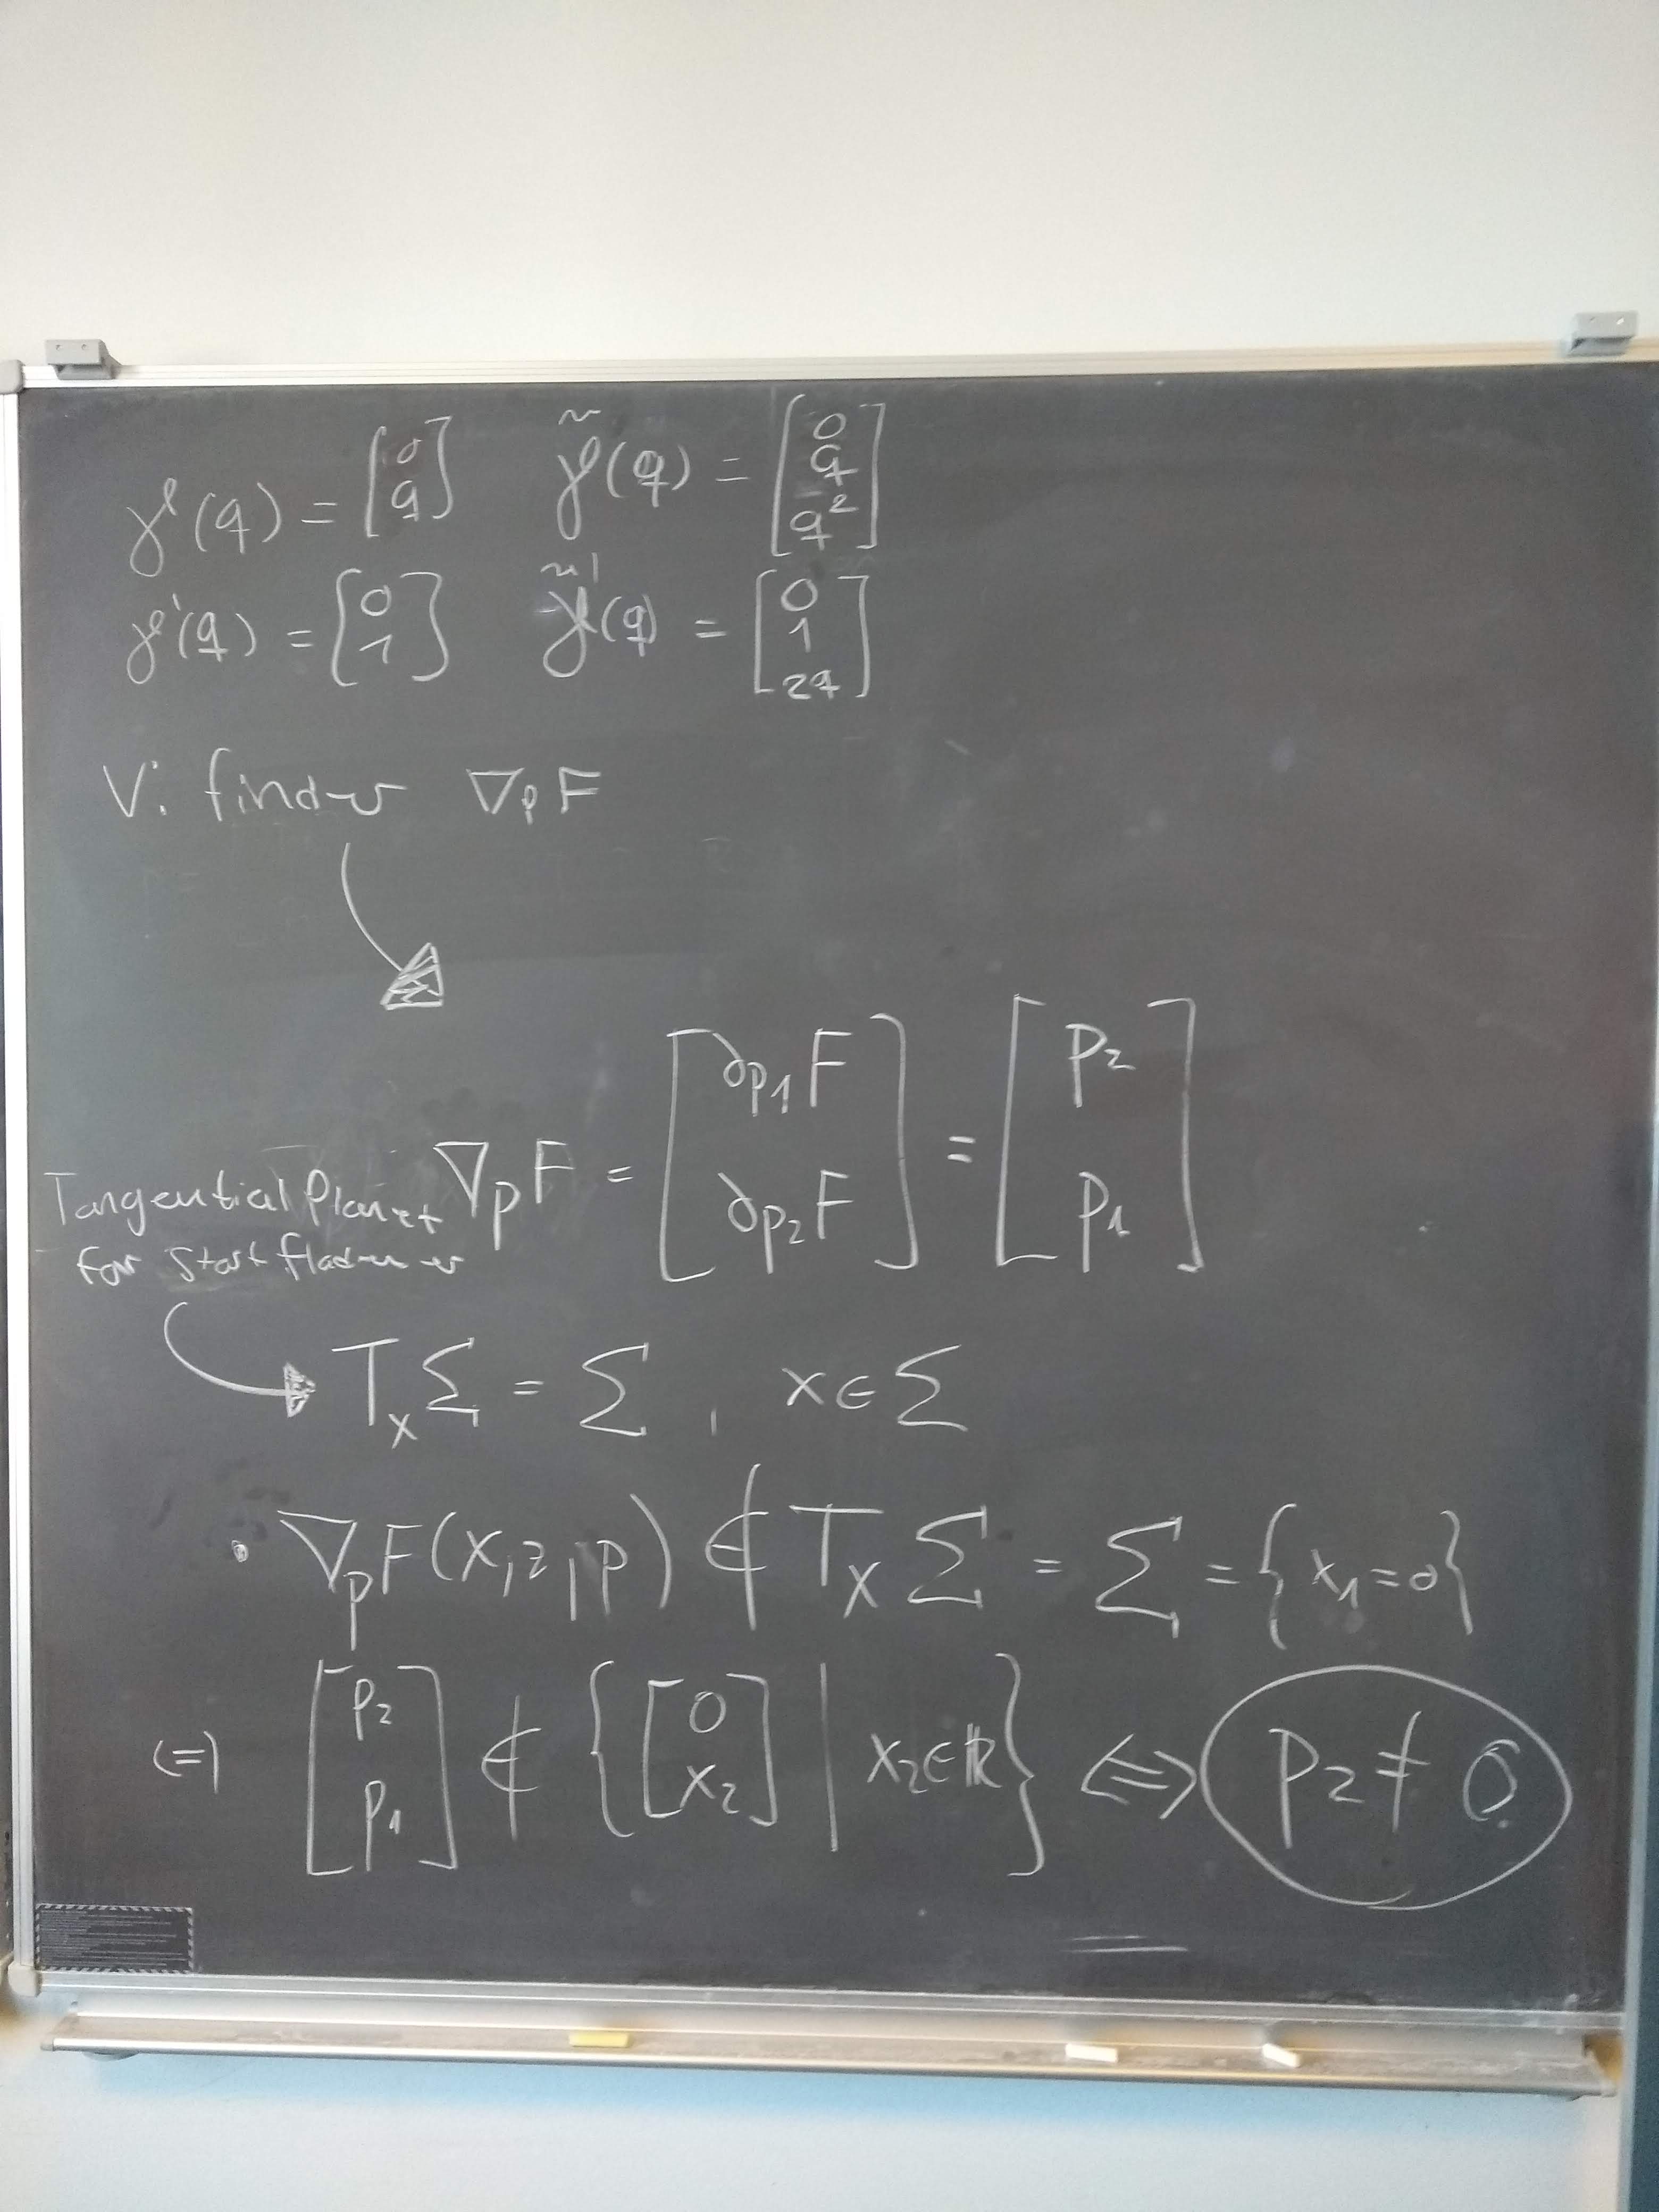 γ(q) = [0 q] γ̃(q) = [0 q q²]
γ'(q) = [0 1] γ̃'(q) = [0 1 2q]
Vi finder ∇ₚF
∇ₚF = [∂p₁F ∂p₂F] = [p₂ p₁]
Tangentialplanet
for startfladen er
TₓΣ = Σ , x∈Σ
• ∇ₚF(x,z,p) ∉ TₓΣ = Σ = {x₁=0}
⇔ [p₂ p₁] ∉ {[0 x₂] | x₂∈ℝ} ⇔ p₂ ≠ 0